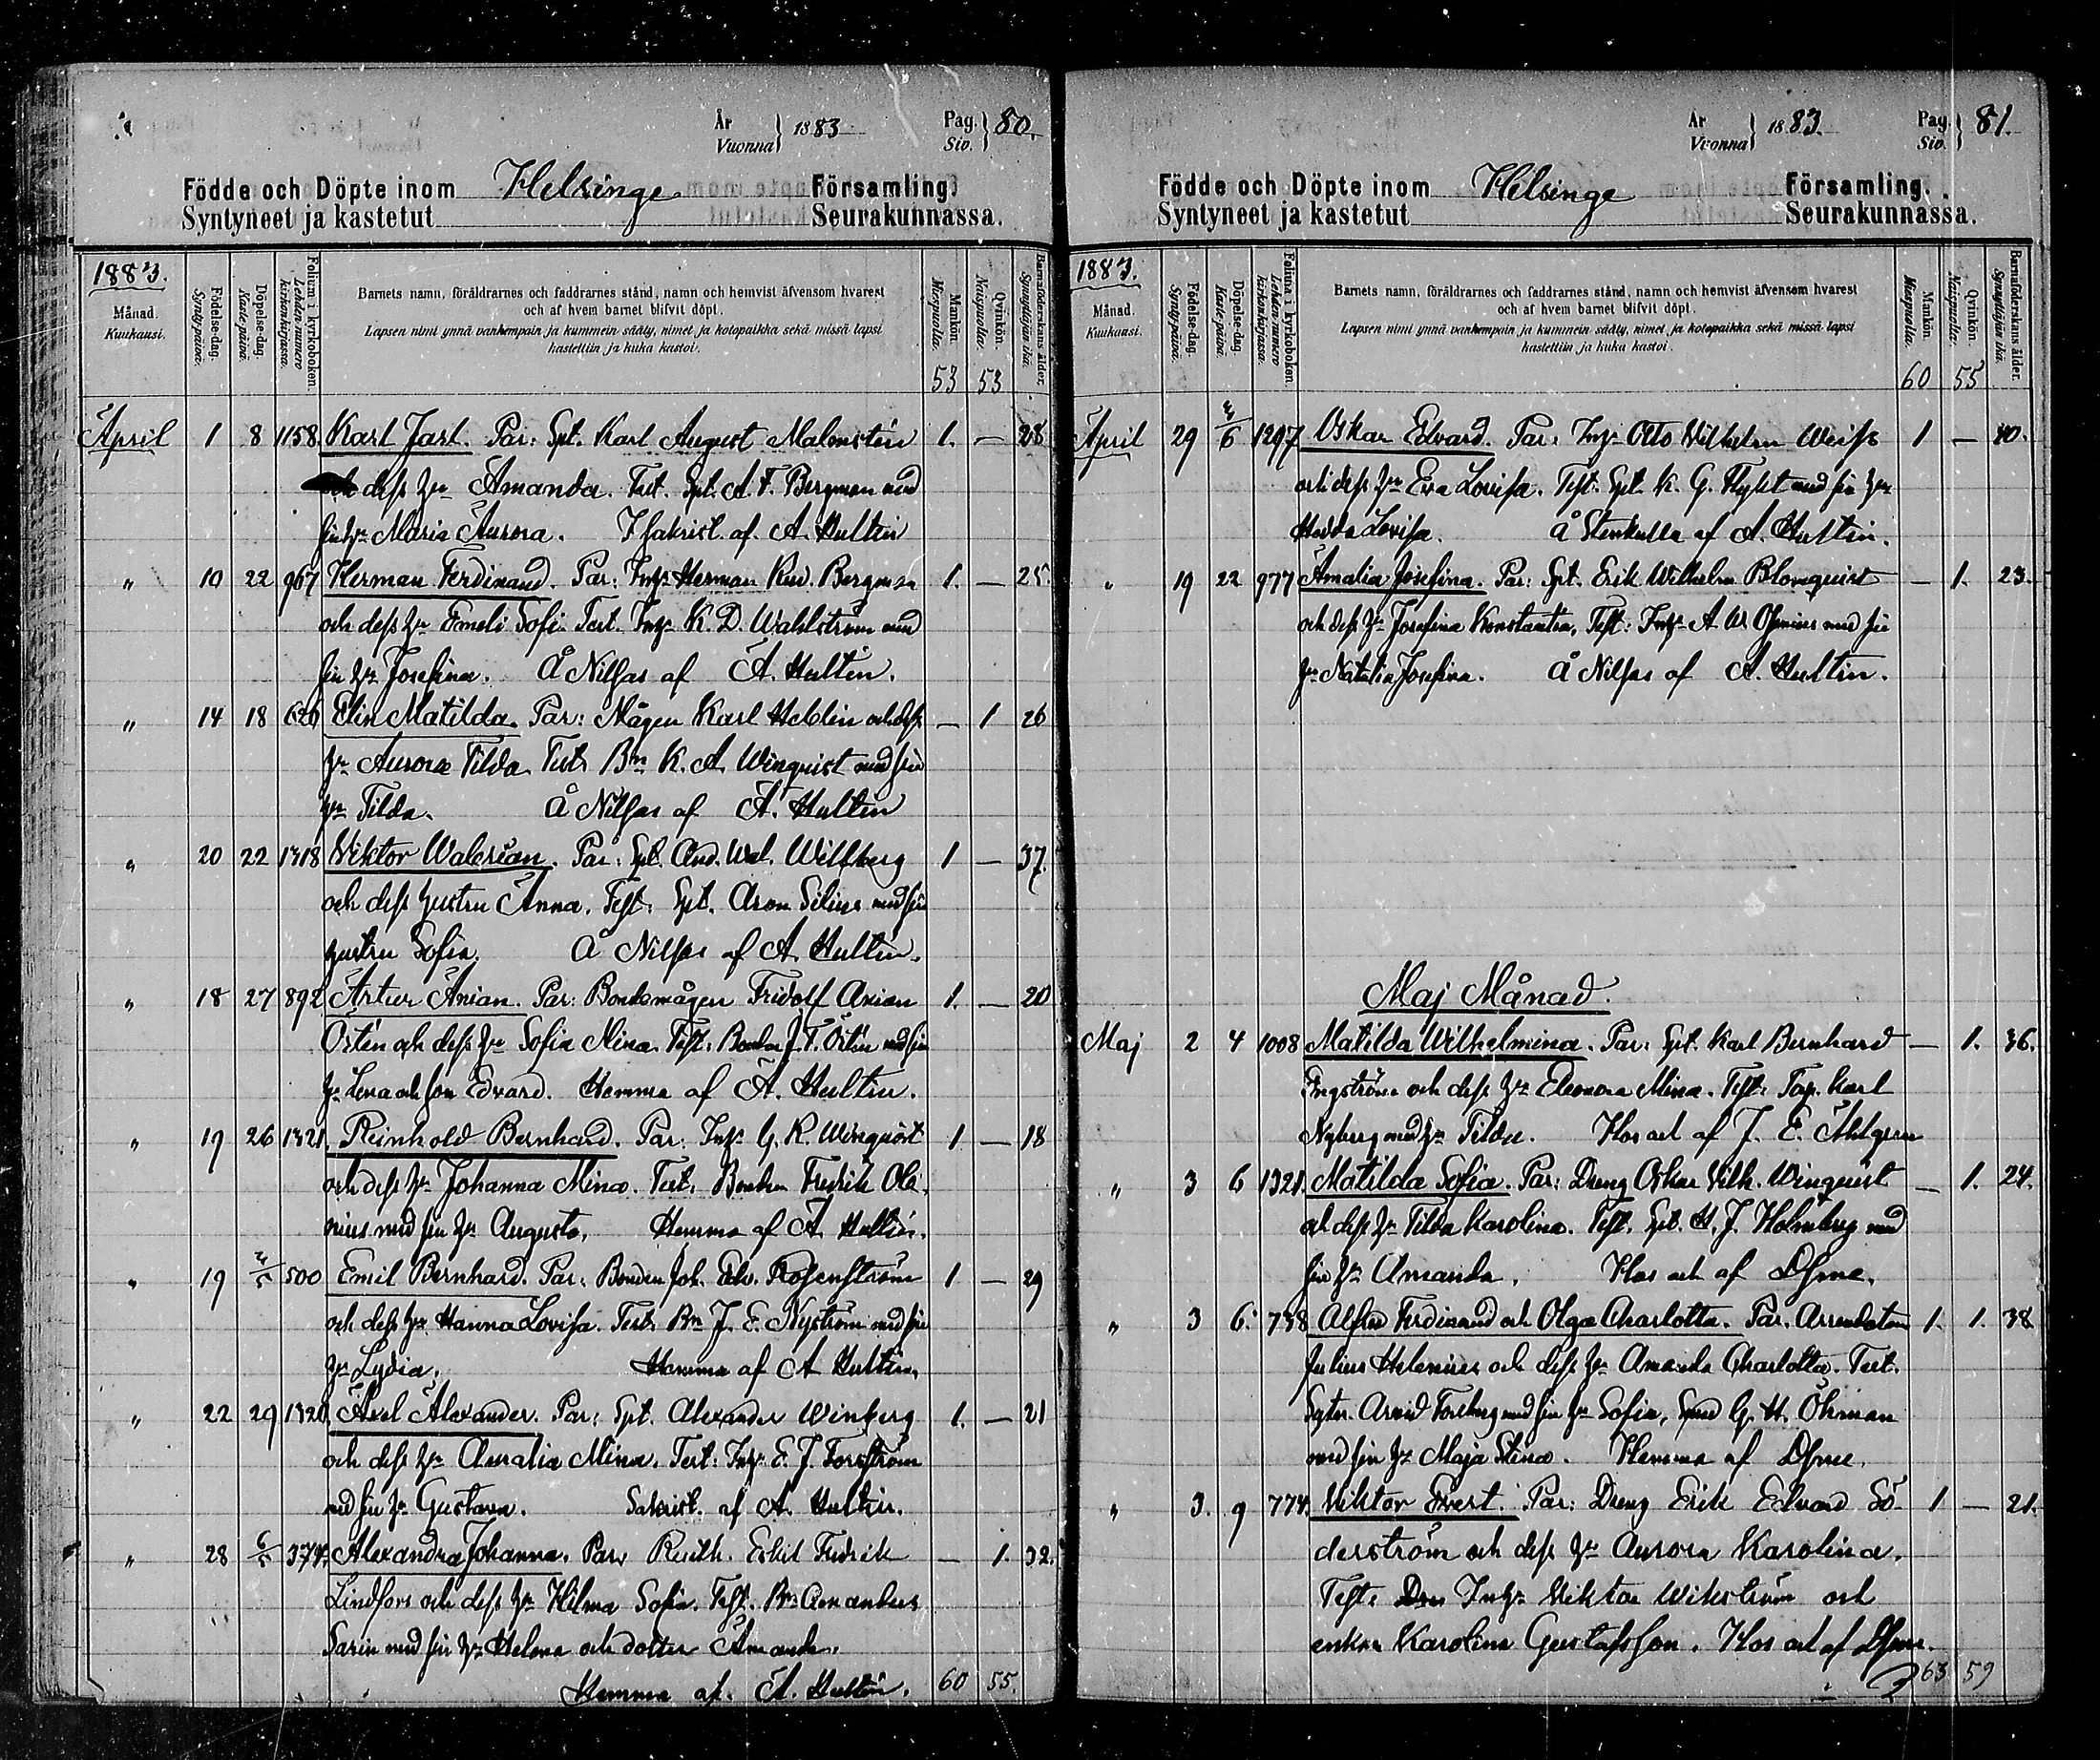 År
Vuonna 1883
Pag.
Siv. 80.
Födde och Döpte inom Helsinge Församling.
Syntyneet ja kastetut Seurakunnassa.
1883.
Månad.
Kuukausi.
Födelse-dag.
Syntypäivä.
Döpelse-dag.
Kaste-päivä.
Folium i kyrkoboken.
Lehden numero kirkonkirjassa.
Barnets namn, föräldrarnes och faddrarnes stånd, namn och hemvist äfvensom hvarest
och af hvem barnet blifvit döpt.
Lapsen nimi ynnä vanhempain ja kummein sääty, nimet ja kotopaikka sekä missä lapsi
kastettiin ja kuka kastoi.
Mankön.
Miespuolia.
53
Qvinkön.
Naispuolia.
53
Barnaföderskans ålder.
Synnyttäjän ikä.
April 1 8 1158 Karl Jarl. Par: Spt. Karl August Malmstén 1. — 28
dess hu Amanda. Test. Spt. A. F. Bergman med
sin hu Maria Aurora. I sakrist. af A. Hultin
" 10 22 967 Herman Ferdinand. Par: Inhs Herman Bergman 1. — 25
och dess hu Emeli Sofi. Test. Inhs K. D. Wahlström med
sin hu Josefina. Å Nilsas af A. Hultin.
" 14 18 Elin Matilda. Par: Mågen Karl Heldin och dess — 1 26
hu Aurora Tilda. Test. Bn K. A. Winquist med sin
hu Tilda. Å Nilsas af A. Hultin
" 20 22 1318 Viktor Walerian. Par: Spt. And. Wal. Willberg 1 — 37.
och dess hustru Anna. Test. Spt. Aron Silius med sin
hustru Sofia. Å Nilsas af A. Hultin.
" 18 27 892 Artur Anian. Par: Bondemågen Fridolf Anian 1. — 20
Östén och dess hu Sofia Mina. Test: Bonden J. F. Östén med sin
hu Lena och son Edvard. Hemma af A. Hultin.
" 19 26 1321. Reinhold Bernhard. Par: Inhs G. R. Winquist 1 — 18
och dess hu Johanna Mina. Test. Bonden Fredrik Ole-
nius med sin hu Augusta. Hemma af A. Hultin.
" 19 500 Emil Bernhard. Par: Bonden Joh. Edv. Rosenström 1 — 29
och dess hu Hanna Lovisa. Test. Bn J. E. Nyström med sin
hu Lydia. Hemma af A. Hultin.
" 22 29 1320 Axel Alexander. Par: Spt. Alexander Winberg 1. — 21
och dess hu Amalia Mina. Test: Inhs E. J. Forsström
med sin hu Gustava. Sakrist. af A. Hultin.
" 28 6/5 374. Alexandra Johanna. Par: Eskil Fredrik — 1. 32.
Lindfors och dess hu Hilma Sofia. Test. Bn Amandus
Sarin med sin hu Helena och dotter Amanda.
Hemma af A. Hultin. 60 55.
År
Vuonna 1883.
Pag.
Siv. 81.
Födde och Döpte inom Helsinge Församling.
Syntyneet ja kastetut Seurakunnassa.
1883.
Månad.
Kuukausi.
Födelse-dag.
Syntypäivä.
Döpelse-dag.
Kaste-päivä.
Folium i kyrkoboken.
Lehden numero kirkonkirjassa.
Barnets namn, föräldrarnes och faddrarnes stånd, namn och hemvist äfvensom hvarest
och af hvem barnet blifvit döpt.
Lapsen nimi ynnä vanhempain ja kummein sääty, nimet ja kotopaikka sekä missä lapsi
kastettiin ja kuka kastoi.
Mankön.
Miespuolia.
60
Qvinkön.
Naispuolia.
55
Barnaföderskans ålder.
Synnyttäjän ikä.
April 29 1297 Oskar Edvard. Par: Inhs Otto Wilhelm Weiss 1 — 40.
och dess hu Eva Lovisa. Test. Spt. K. G. Flykt med sin hu
Hedda Lovisa. Å Stenkulla af A. Hultin.
" 19 22 977 Amalia Josefina. Par: Spt. Erik Wilhelm Blomquist — 1. 23.
och dess hu Josefina Konstantia. Test: Inhs A. W. med sin
hu Natalia Josefina. Å Nilsas af A. Hultin.
Maj Månad.
Maj 2 4 1008 Matilda Wilhelmina. Par: Spt. Karl Bernhard — 1. 36.
Engström och dess hu Eleonora Mina. Test: Karl
Nyberg med hu Tilda. Hos och af J. E. Ahlgren
" 3 6 1321. Matilda Sofia. Par: Dreng Oskar Vilh. Winquist — 1. 24.
och dess hu Tilda Karolina. Test. Spt. H. J. Holmberg med
sin hu Amanda. Hos och af Dsme.
" 3 6. 738 Alfred Ferdinand och Olga Charlotta. Par. Arrendatorn 1. 1. 38
Julius Helenius och dess hu Amanda Charlotta. Test.
Arvid Forsberg med sin hu Sofia, G. H. Öhman
med sin hu Maja Stina. Hemma af Dsme.
" 3. 9 774. Viktor Evert. Par: Dreng Erik Edvard Sö- 1 — 21.
derström och dess hu Aurora Karolina.
Test. Inhs Viktor Wikström och
enkan Karolina Gustafsson. Hos och af Dsme.
63 59